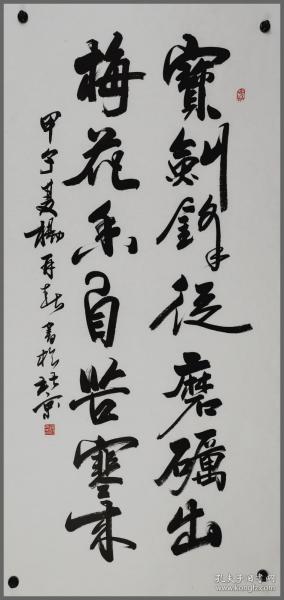 寶劍鋒從磨礪出
梅花香自苦寒來
甲午夏楊再春書於北京
孔夫子旧书网